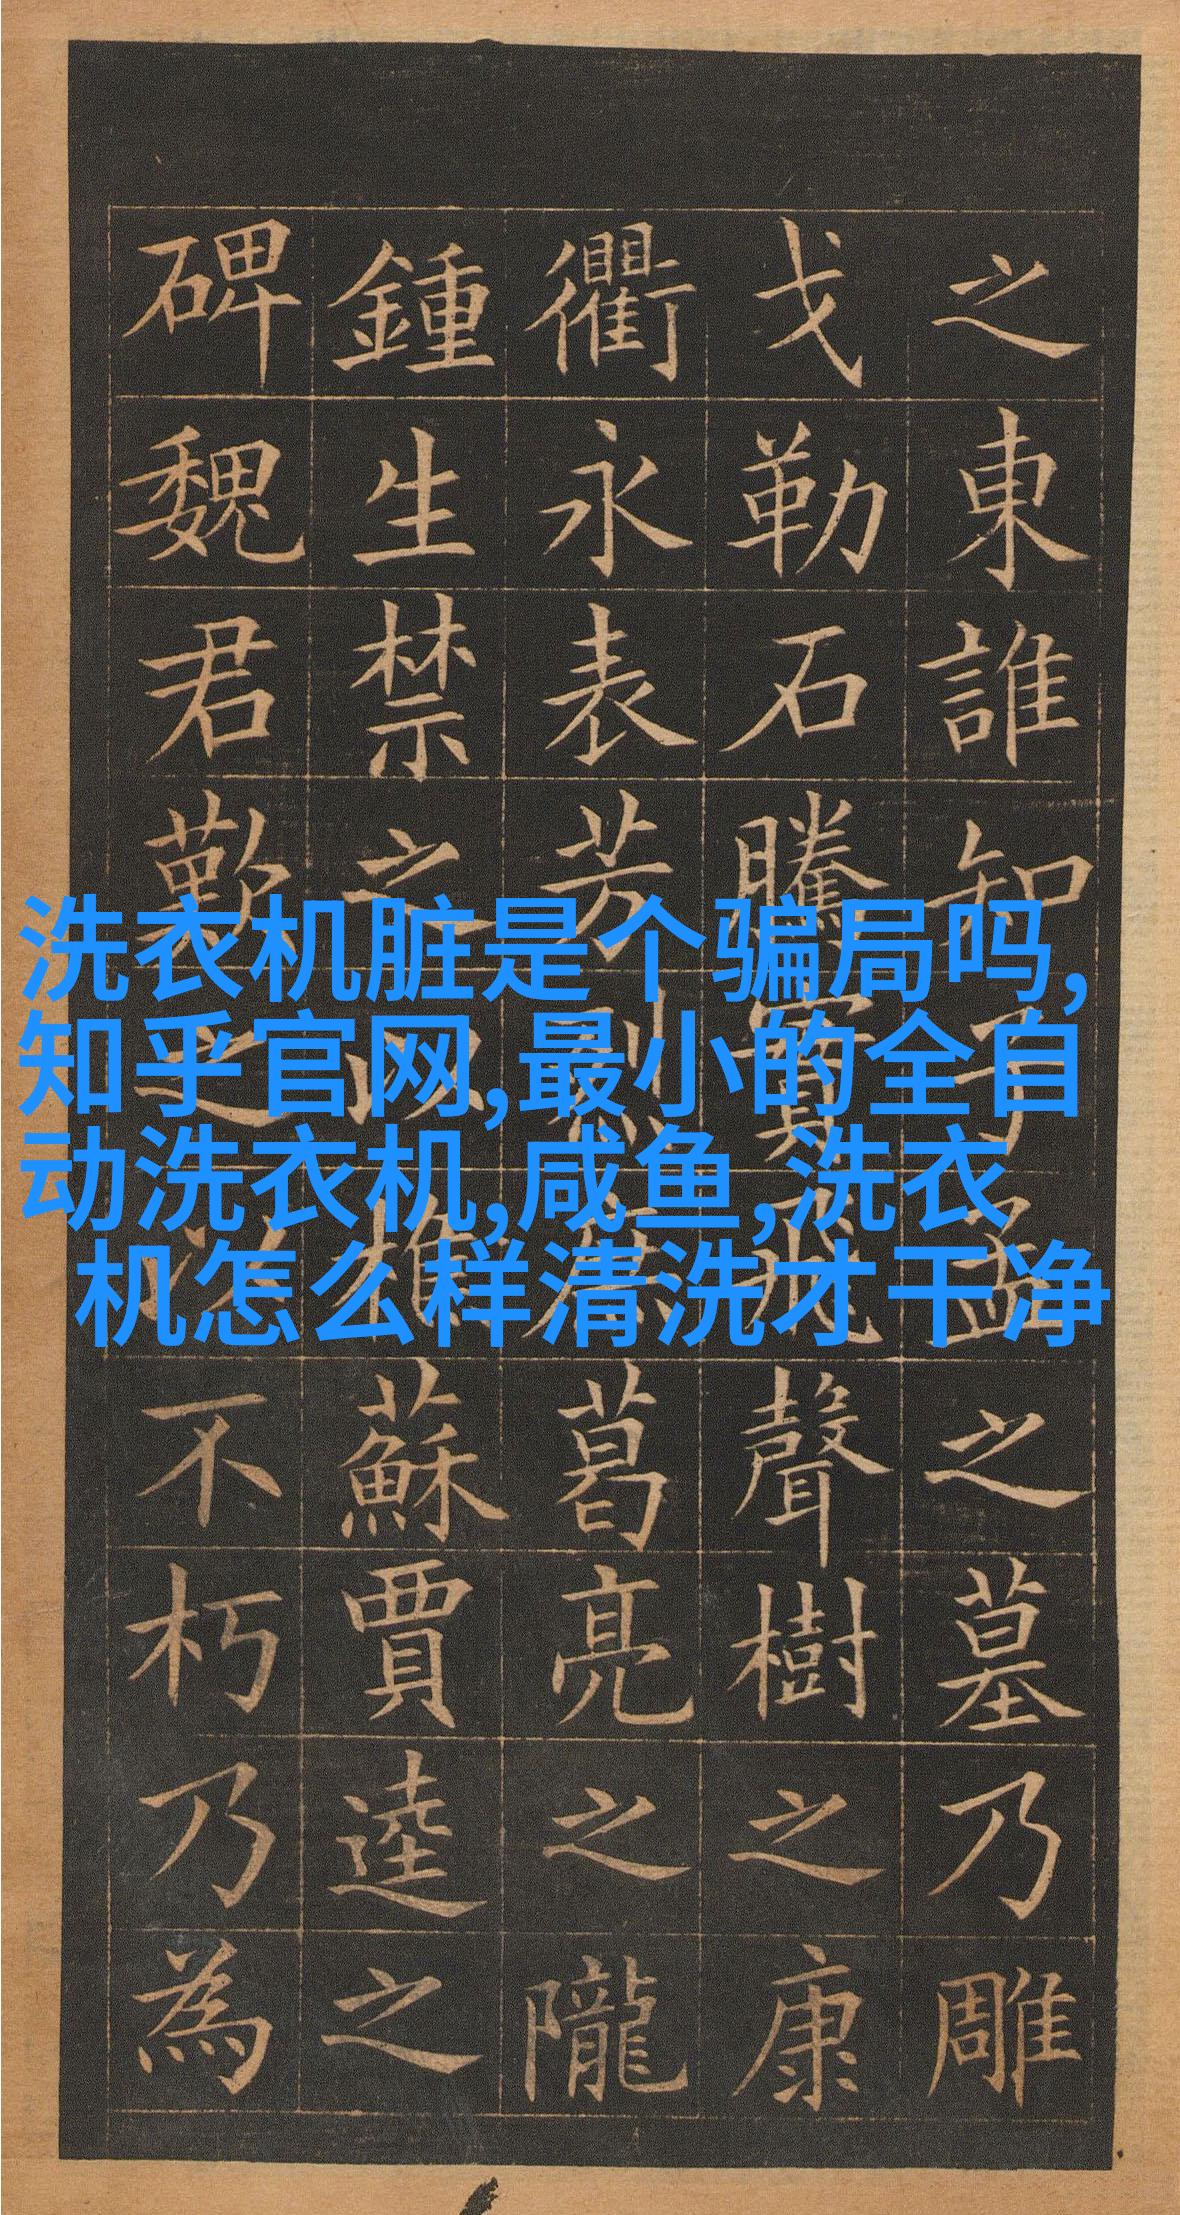 之東誰知孟之墓乃雕
戈勒石騰實飛聲樹之康
衢永表芳烈葛亮之隴
鍾生禁之以樵蘇賈逵之
碑魏君歎之以不朽乃為
洗衣机脏是个骗局吗,
知乎官网,最小的全自
动洗衣机,咸鱼,洗衣
机怎么样清洗才干净